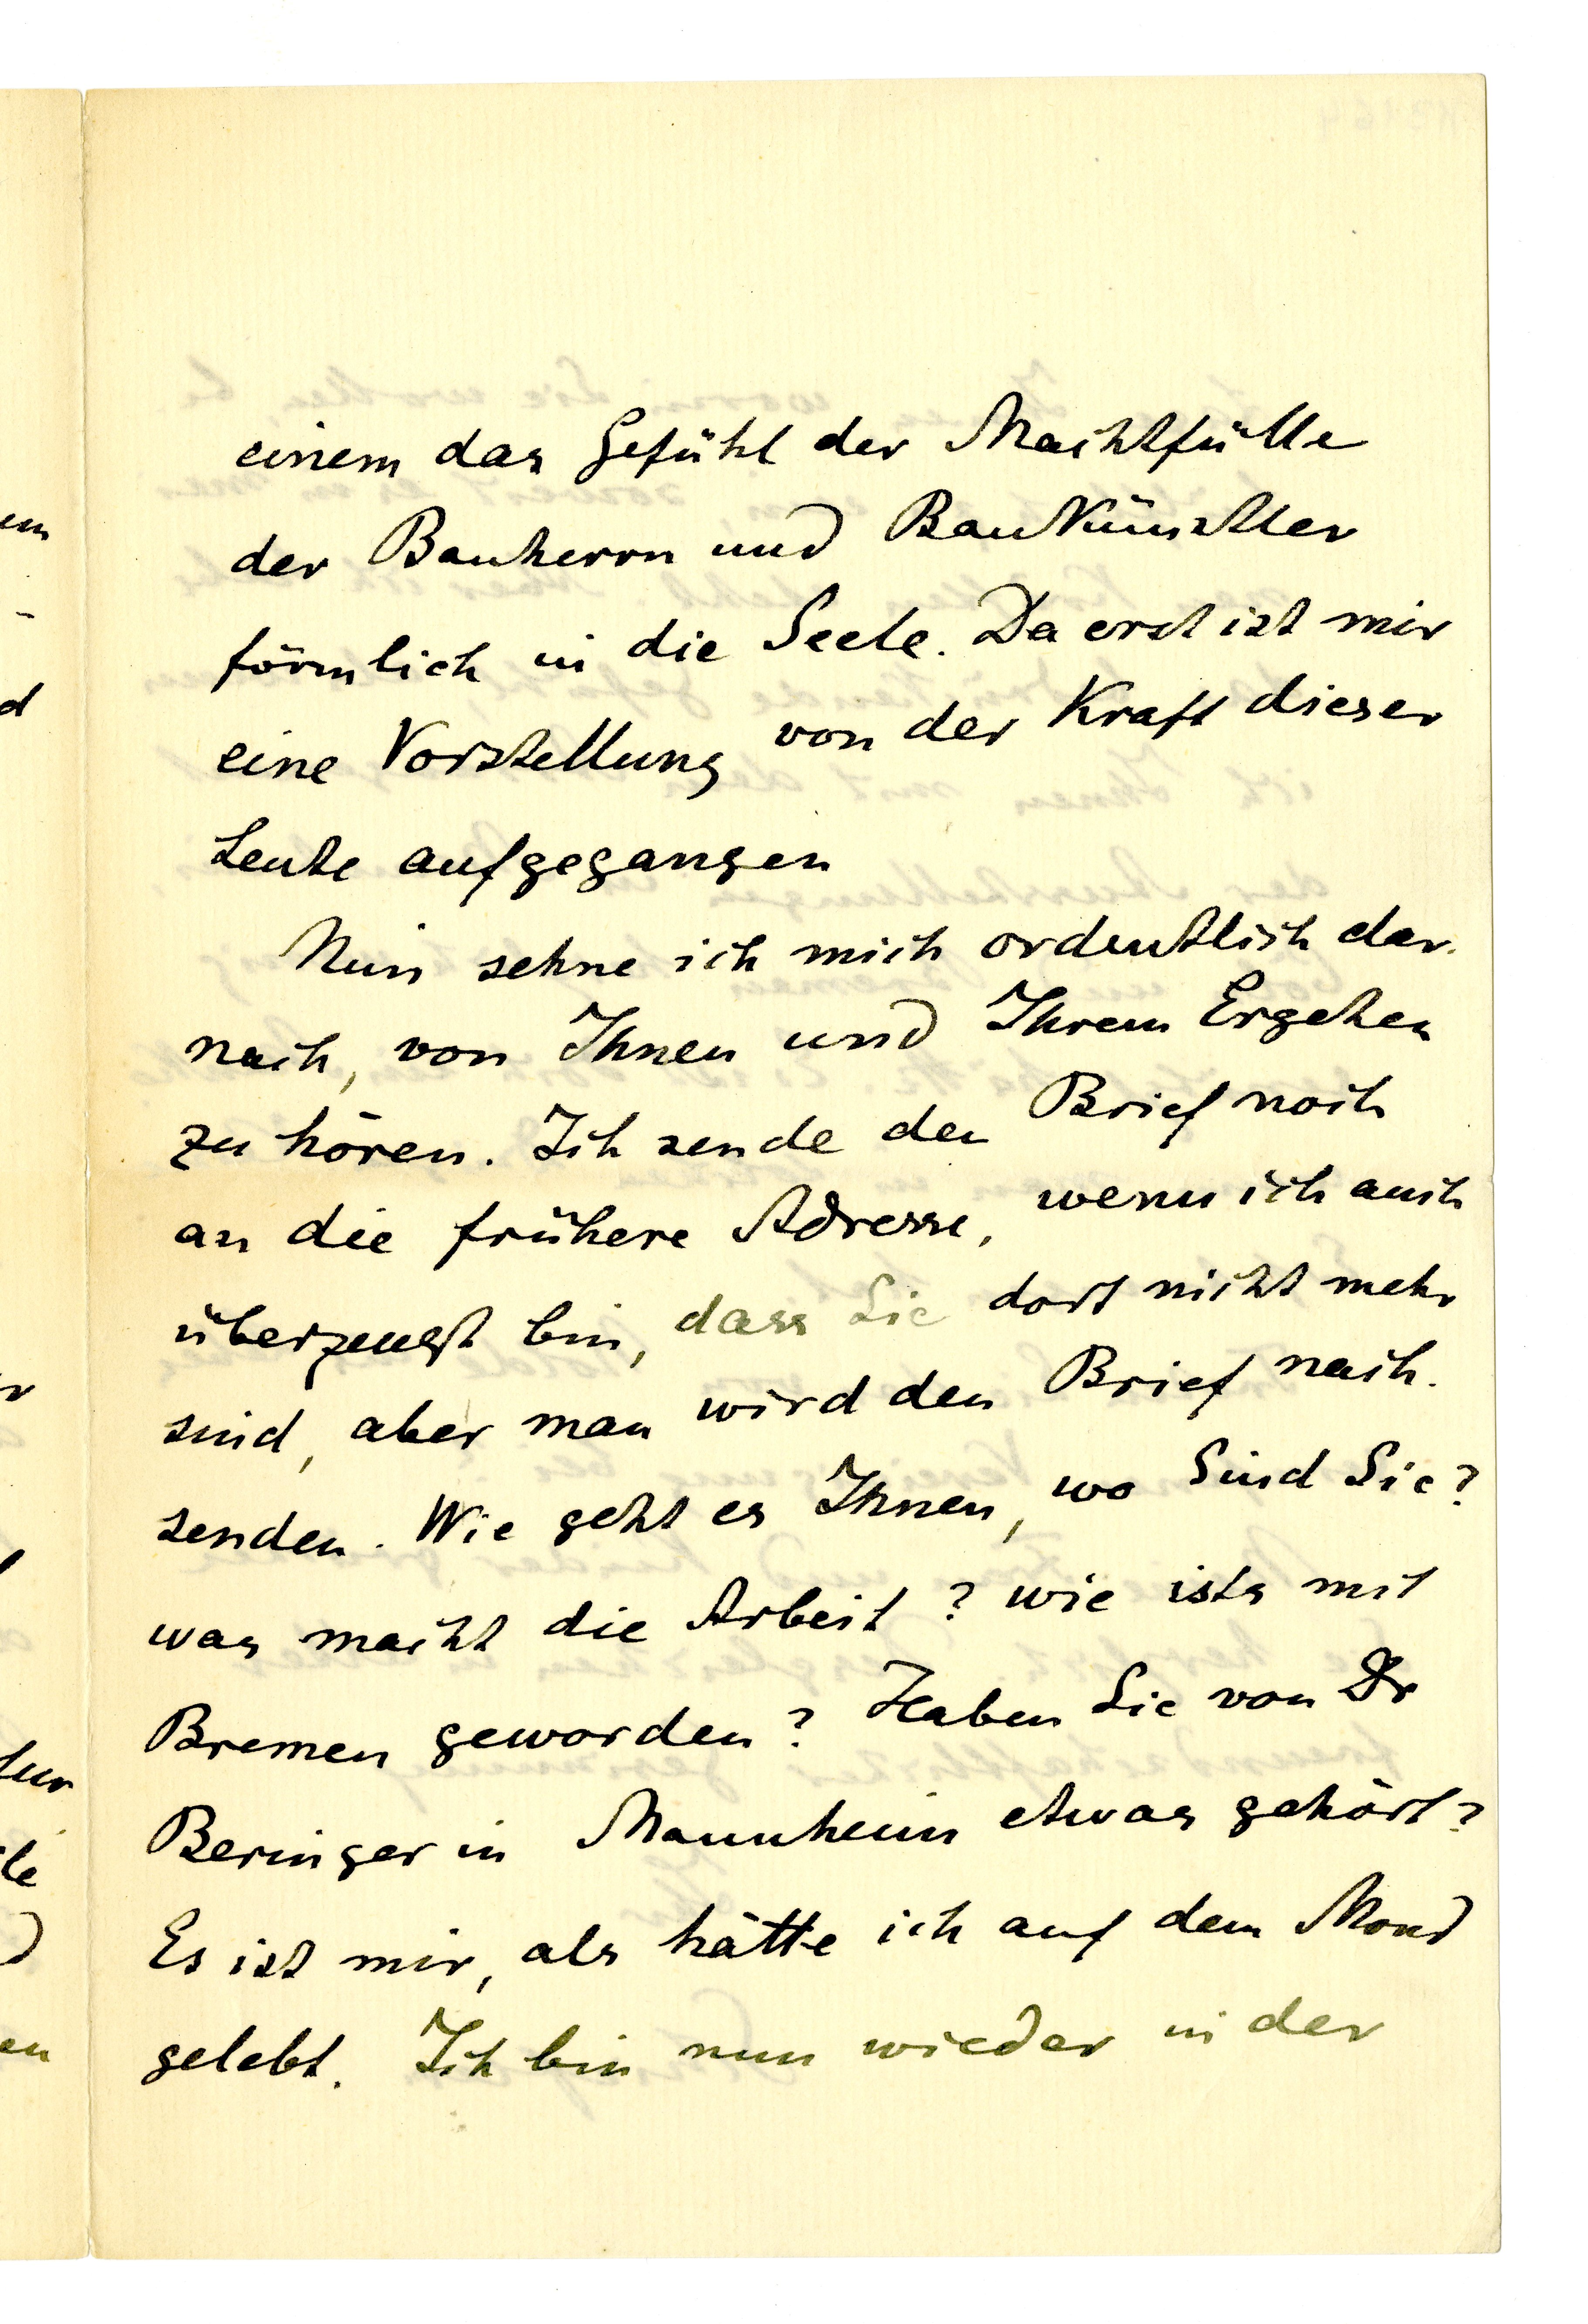 einem das Gefühl der Machtfülle
der Bauherrn und Baukünstler
förmlich in die Seele. Da erst ist mir
eine Vorstellung von der Kraft dieser
Leute aufgegangen
Nun sehne ich mich ordentlich dar-
nach, von Ihnen und Ihrem Ergehen
zu hören. Ich sende den Brief noch
an die frühere Adresse, wenn ich auch
überzeugt bin, dass Sie dort nicht mehr
sind, aber man wird den Brief nach-
senden. Wie geht es Ihnen, wo sind Sie?
was macht die Arbeit? wie ists mit
Bremen geworden? Haben Sie von Dr
Beringer in Mannheim etwas gehört?
Es ist mir, als hätte ich auf dem Mond
gelebt. Ich bin nun wieder in der